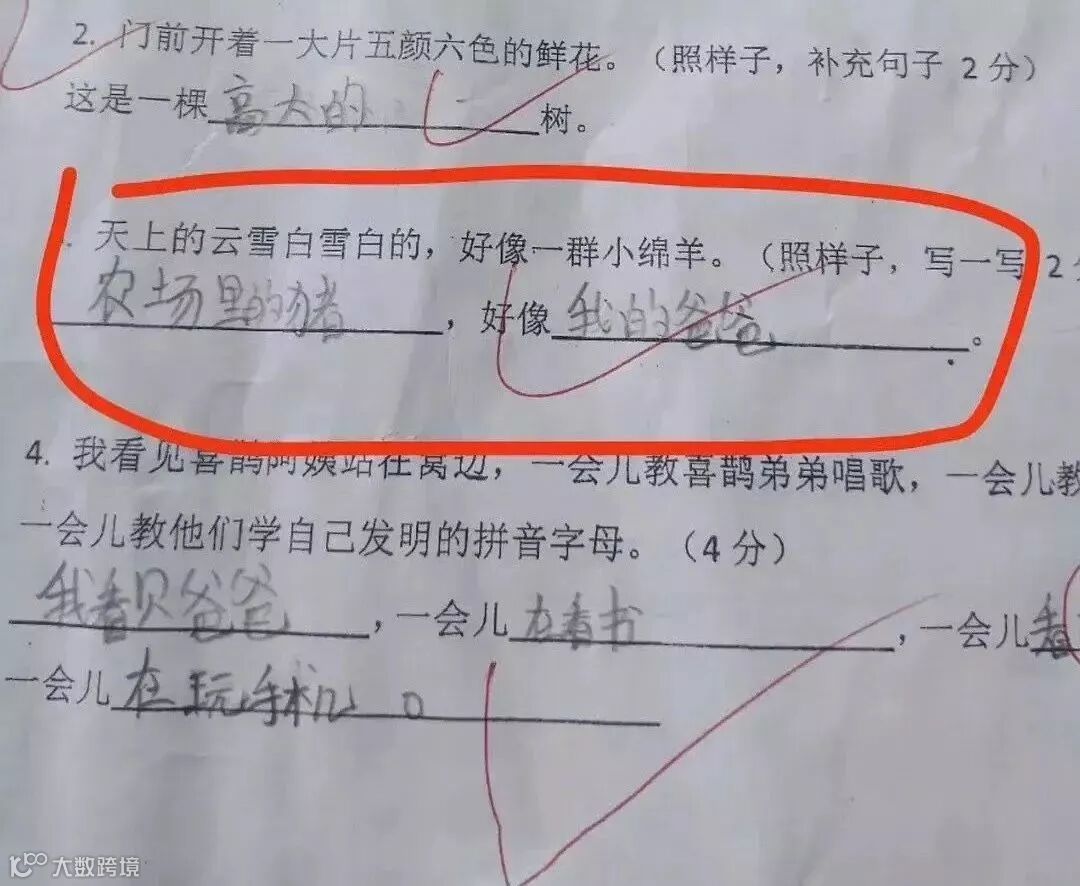 2. 门前开着一大片五颜六色的鲜花。（照样子，补充句子 2分）
这是一棵高大的树。
天上的云雪白雪白的，好像一群小绵羊。（照样子，写一写 2
农场里的猪，好像我的爸爸。
4. 我看见喜鹊阿姨站在窝边，一会儿教喜鹊弟弟唱歌，一会儿教
一会儿教他们学自己发明的拼音字母。（4分）
我看贝爸爸，一会儿在看书，一会儿看
一会儿在玩手机。
大数跨境